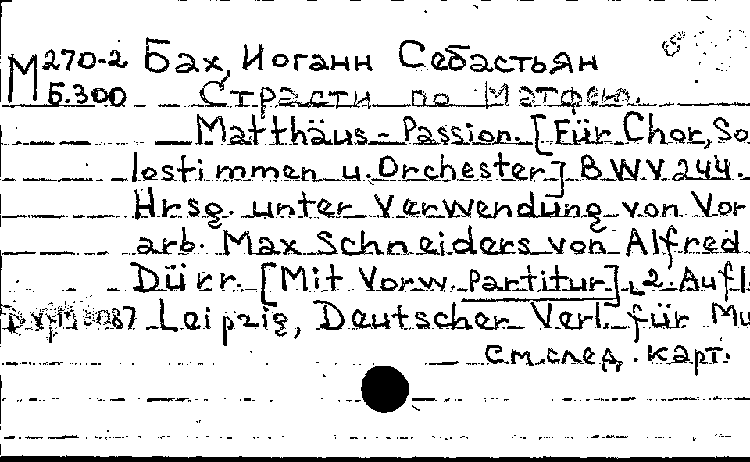 М 270-2 Бах, Иоганн Себастьян
Б.300 Страсти по Матфею.
Matthäus-Passion. [Für Chor, So
lostimmen u. Orchester] BWV 244.
Hrsg. unter Verwendung von Vor
arb. Max Schneiders von Alfred
Dürr. [Mit Vorw. Partitur]. 2. Aufl.
Leipzig, Deutscher Verl. für Mu
см. след. карт.